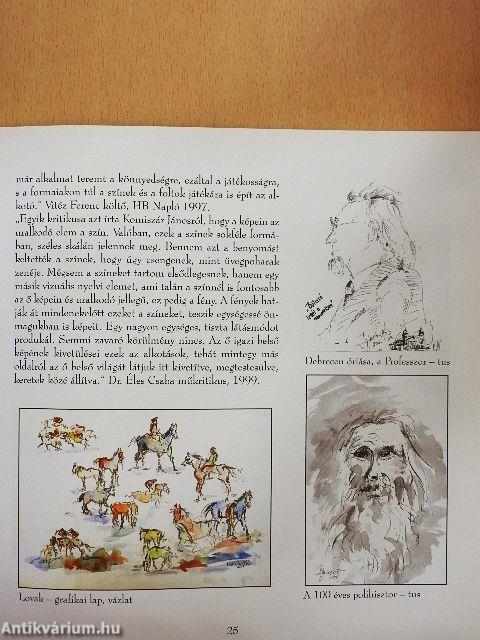 már alkalmat teremt a könnyedségre, ezáltal a játékosságra,
s a formaiakon túl a színek és a foltok játékára is épít az al-
kotó." Vitéz Ferenc költő, HB Napló 1997.
„Egyik kritikusa azt írta Komiszár Jánosról, hogy a képein az
uralkodó elem a szín. Valóban, ezek a színek sokféle formá-
ban, széles skálán jelennek meg. Bennem azt a benyomást
keltették a színek, hogy úgy csengenek, mint üvegpoharak
zenéje. Mégsem a színeket tartom elsődlegesnek, hanem egy
másik vizuális nyelvi elemet, ami talán a színnél is fontosabb
az ő képein és uralkodó jellegű, ez pedig a fény. A fények hat-
ják át mindenekelőtt ezeket a színeket, teszik egységessé ön-
magukban is képeit. Egy nagyon egységes, tiszta látásmódot
produkál. Semmi zavaró körülmény nincs. Az ő igazi belső
képének kivetülései ezek az alkotások, tehát mintegy más
oldalról az ő belső világát látjuk itt kivetítve, megtestesülve,
keretek közé állítva." Dr. Éles Csaba műkritikus, 1999.
Debrecen óriása, a Professzor – tus
Lovak – grafikai lap, vázlat
A 100 éves polihisztor – tus
25
Antikvárium.hu